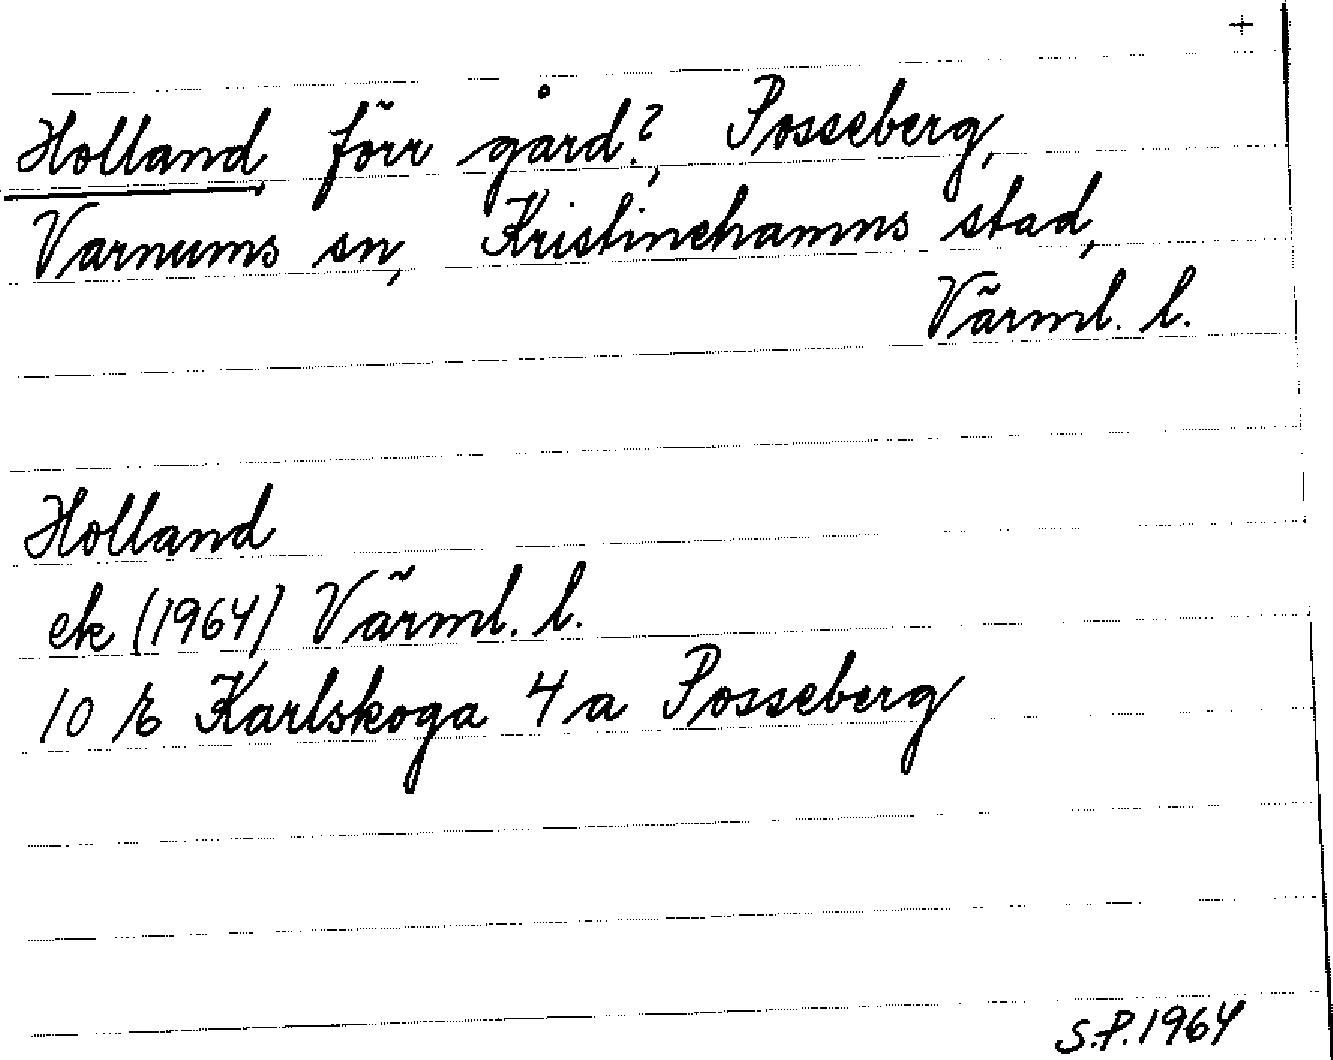 +
Holland förr gård?, Posseberg,
Varnums sn, Kristinehamns stad,
Värml. l.
Holland
ek (1964) Värml. l.
10 Karlskoga 4 a Posseberg
S.P. 1964